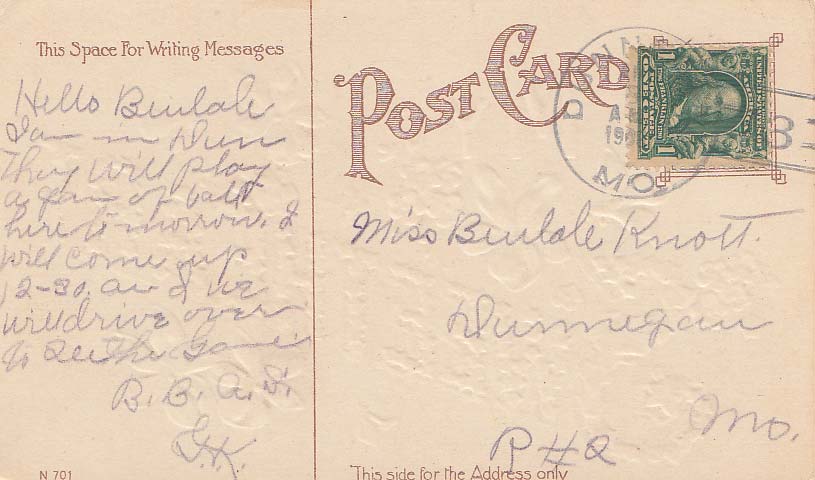 This Space For Writing Messages
Hello Beulale
I am in Dun
They will play
a gam of ball
here to morrow. I
will come up
12-30. and we
will drive over
to see the Game
B. B. A. D.
G.K.
N 701
POST CARD
DUNN
MO.
Miss Beulale Knott.
Dunnegan
Mo.
R # 2
This side for the Address only